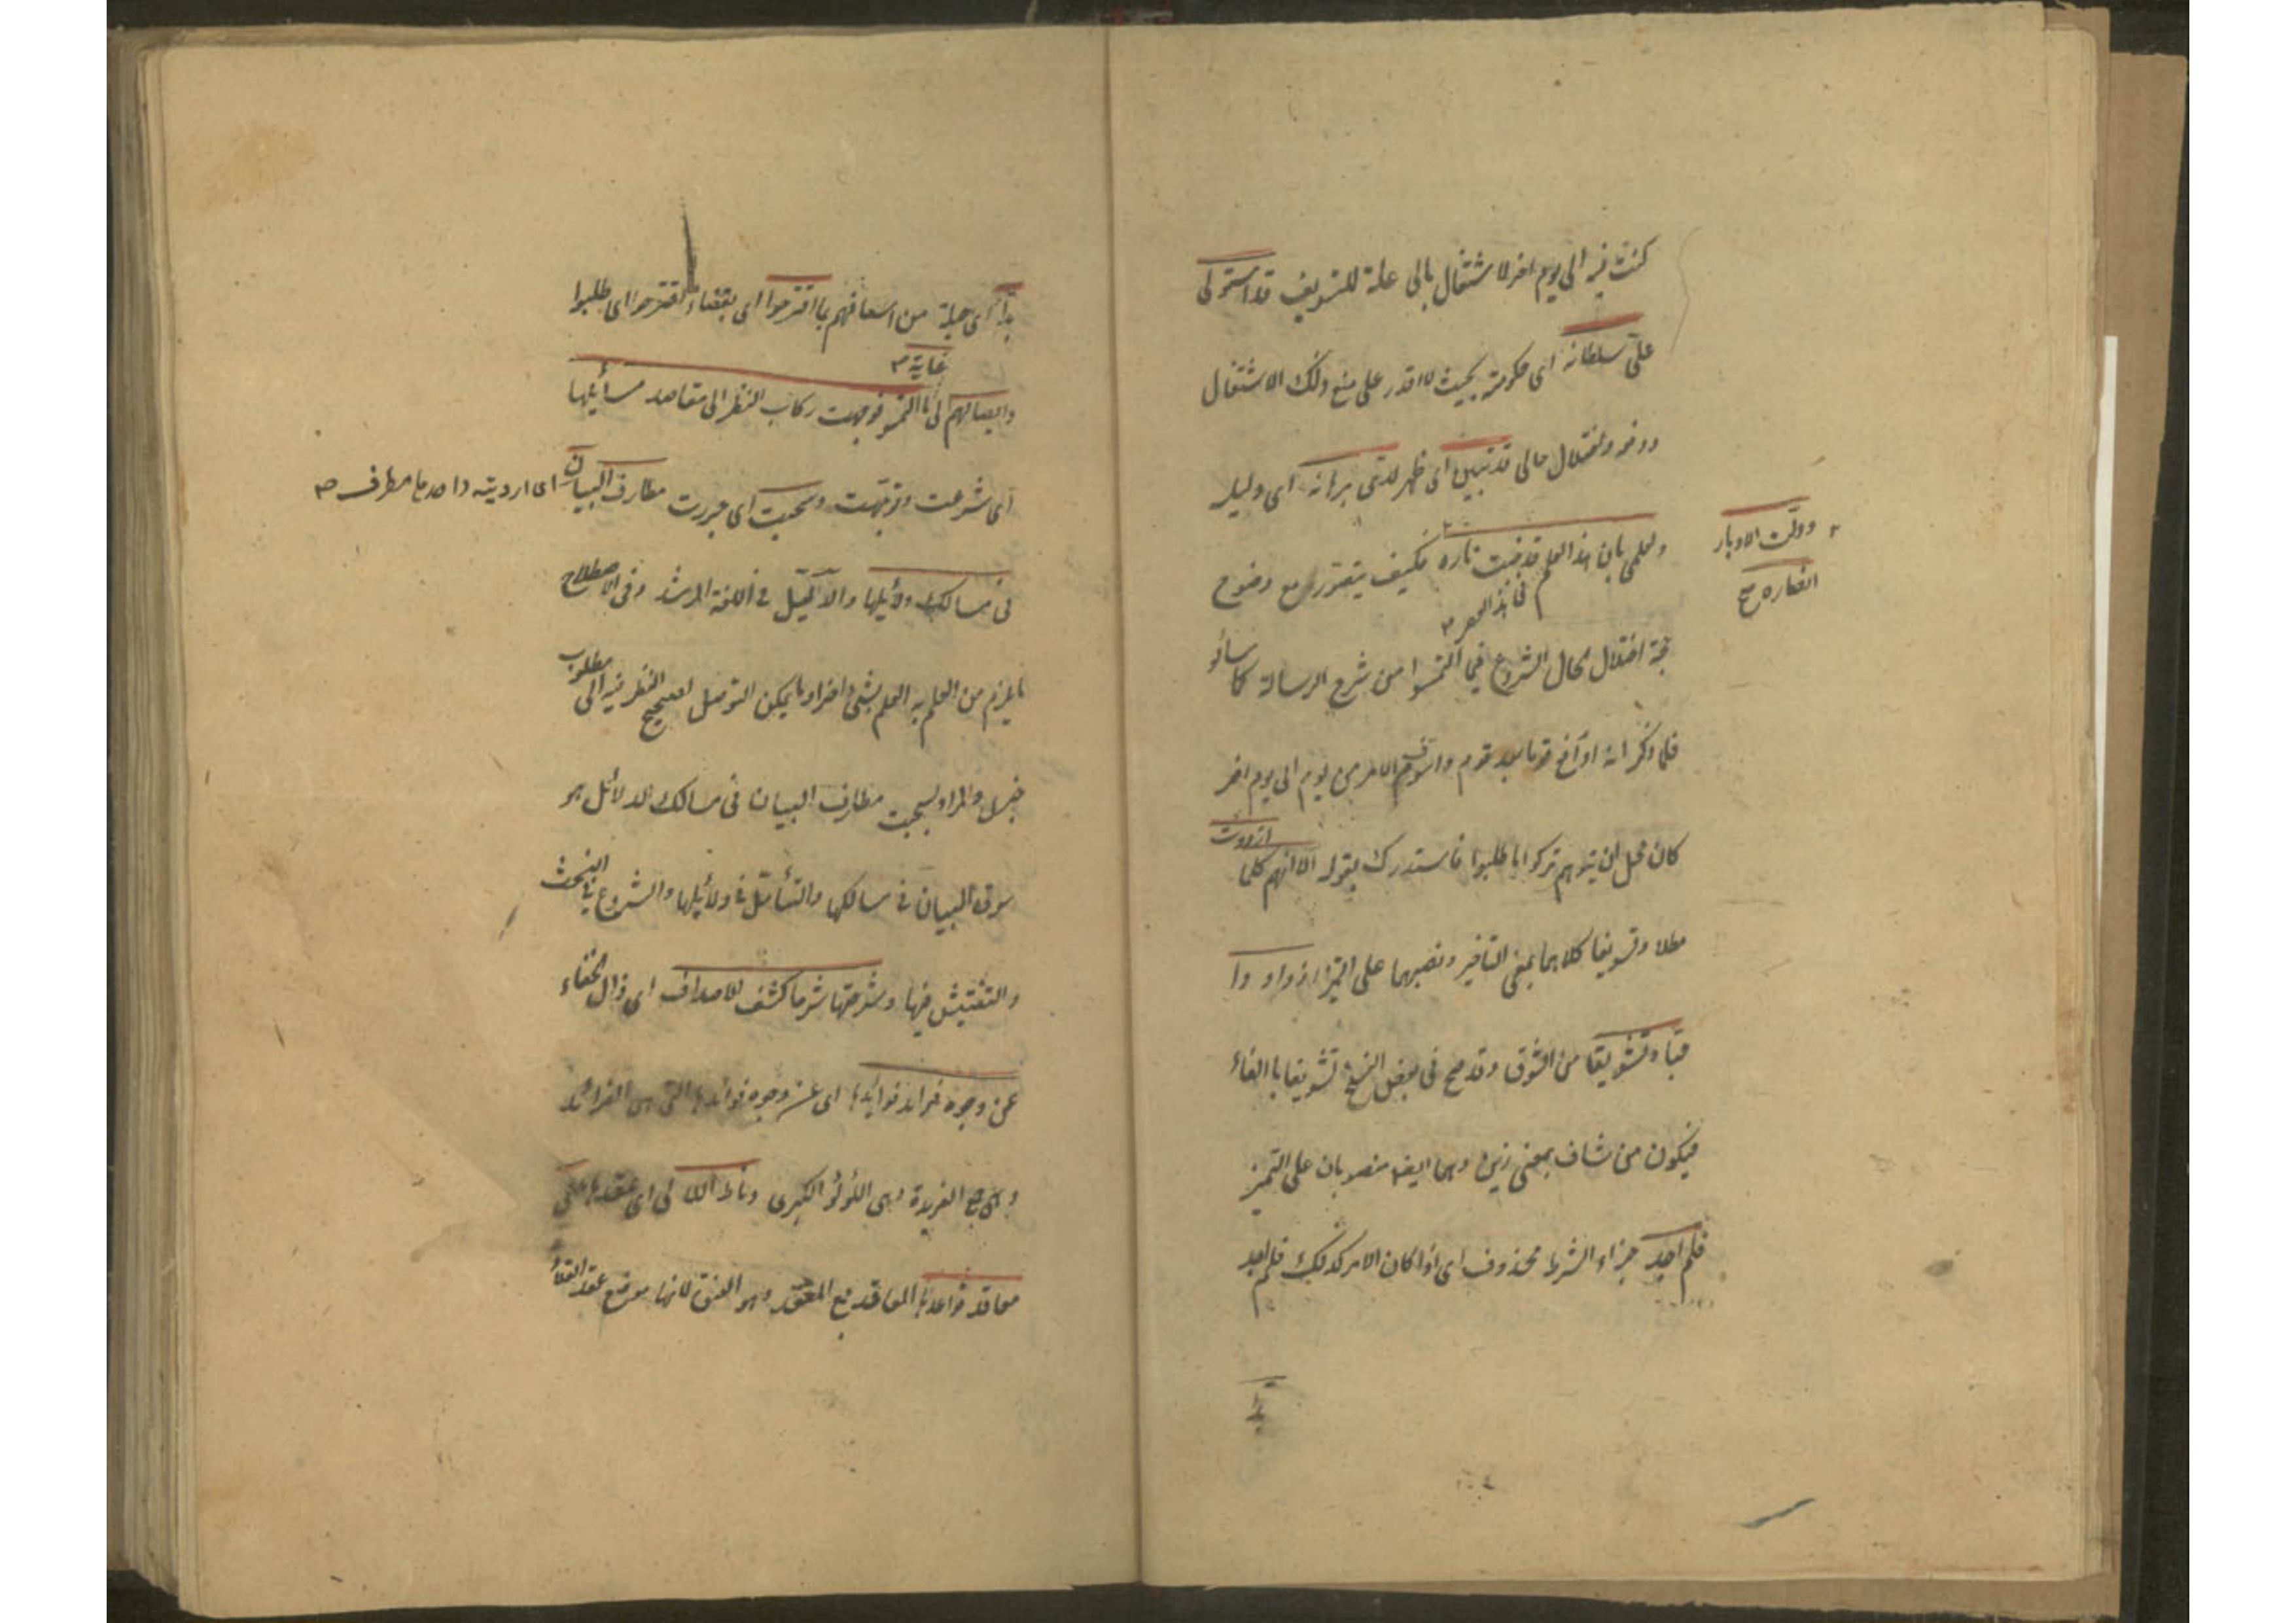 كنت فيه الى يوم اخر لاشتغال بالى علة للتسويف قد استولى
على سلطانه اى حكومته بحيث لا اقدر على منع ذلك الاشتغال
ودفعه ولاختلال حالى قد تبين اى ظهر لدى برهانه اى دليله
ولعلمى بان هذا العلم قد خبت ناره فكيف يتصور مع وضوح
فى هذا العصر
وولّت الادبار
انصاره صح
اختلال الحال الشروع فيما التمسوا من شرح الرسالة كما سألوا
فلما ذكر انه ادافع قوما بعد قوم واسوف الامر من يوم الى يوم اخر
كان محل ان يتوهم تركوا ما طلبوا فاستدرك بقوله الا انهم كلما
ازددت
مطلا وتسويفا كلاهما بمعنى التاخير ونصبهما على التميز ازدادوا
تشويقا من الشوق وقد صح فى بعض النسخ تشويفا بالفاء
فيكون من شاف بمعنى زين وهما ايضا منصوبان على التميز
فلم اجد جزاء الشرط محذوف اى اذا كان الامر كذلك فلم اجد
بدا
بدا اى حيلة من اسعافهم بما اقترحوا اى بقضاء ما اقترحوا اى طلبوا
غاية
وايصالهم الى ما التمسوا فوجهت ركاب النظر الى مقاصد مسائلها
اى شرعت وتوجهت وسحبت اى جررت مطارف البيان
اى ارديته واحدها مطرف صح
فى مسالك دلائلها والدليل فى اللغة المرشد وفى الاصطلاح
ما يلزم من العلم به العلم بشئ اخر او ما يمكن التوصل بصحيح النظر فيه الى مطلوب
خبرى والمراد بسحبت مطارف البيان فى مسالك الدلائل هو
سوق البيان فى مسالكها والتأمل فى دلائلها والشروع فى البحث
والتفتيش فيها وشرحتها شرحا كشف الاصداف اى ازال الخفاء
عن وجوه فرائد فوائدها اى عن وجوه فوائدها التى هى الفرائد
وهى جمع الفريدة وهى اللؤلؤ الكبرى وناط اللالى اى عقدها على
معاقد قواعدها المعاقد جمع المعقد وهو العنق لانها موضع عقد القلائد